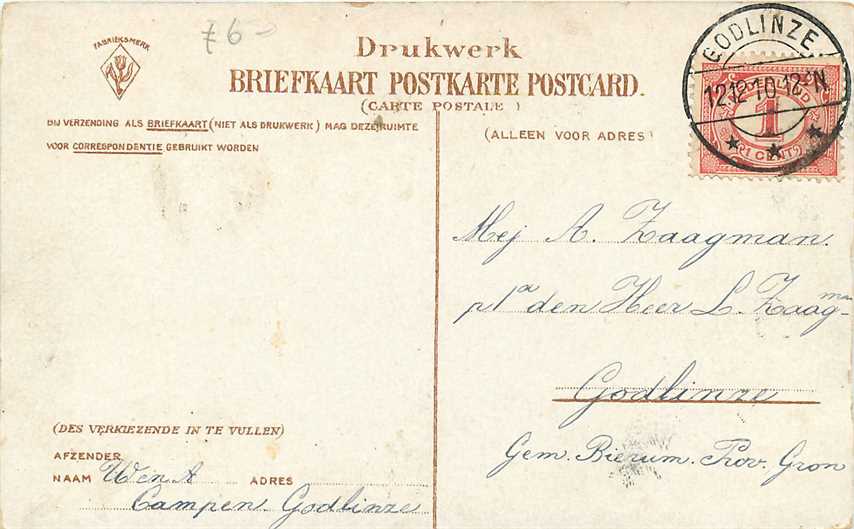 76-
FABRIEKSMERK
Drukwerk
BRIEFKAART POSTKARTE POSTCARD.
(CARTE POSTALE)
BIJ VERZENDING ALS BRIEFKAART (NIET ALS DRUKWERK) MAG DEZE RUIMTE
VOOR CORRESPONDENTIE GEBRUIKT WORDEN
(ALLEEN VOOR ADRES)
GODLINZE.
12 12 10 12 N
1
(1 CENT)
Mej A. Zaagman.
p/a den Heer L. Zaagman
Godlinze
Gem. Bierum. Prov. Gron
(DES VERKIEZENDE IN TE VULLEN)
AFZENDER
NAAM W en A ADRES
Campen Godlinze